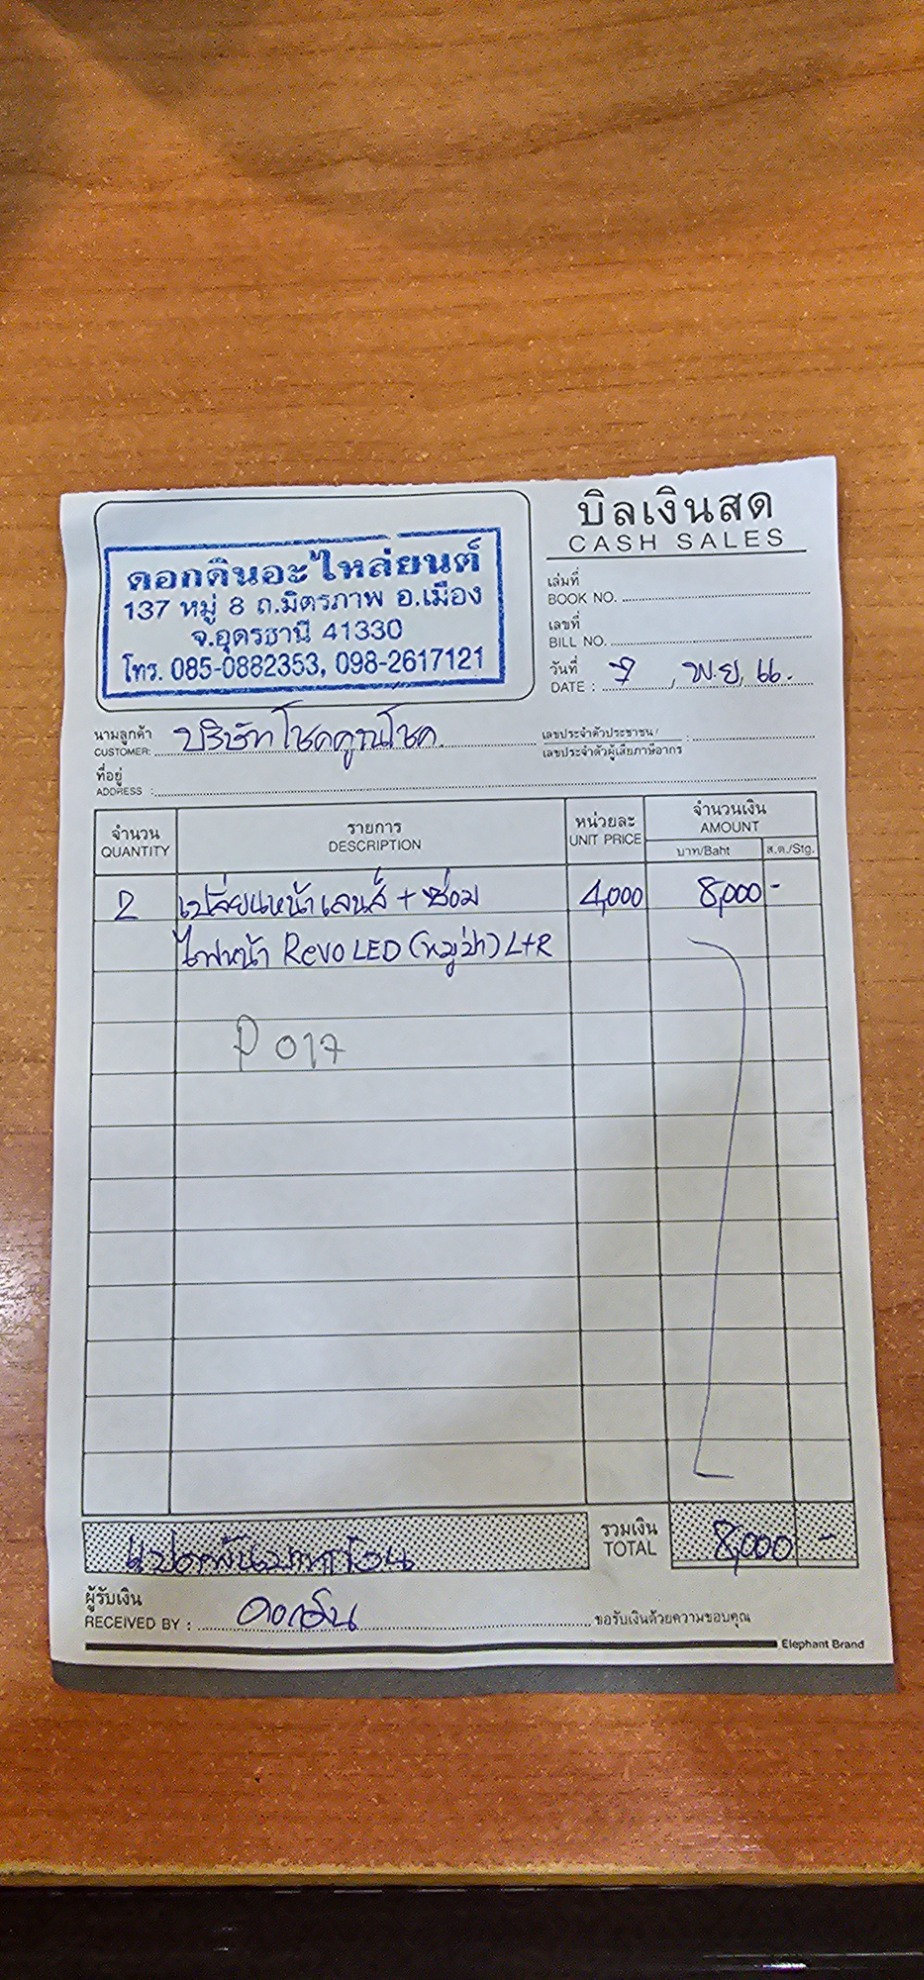 บิลเงินสด
CASH SALES
ดอกดินอะไหล่ยนต์
137 หมู่ 8 ถ.มิตรภาพ อ.เมือง
จ.อุดรธานี 41330
โทร. 085-0882353, 098-2617121
เล่มที่
BOOK NO.
เลขที่
BILL NO.
วันที่
DATE : 7 พ.ย. 66.
นามลูกค้า
CUSTOMER: บริษัทโชคคูณโชค
เลขประจำตัวประชาชน /
เลขประจำตัวผู้เสียภาษีอากร :
ที่อยู่
ADDRESS :
จำนวน รายการ หน่วยละ จำนวนเงิน
QUANTITY DESCRIPTION UNIT PRICE AMOUNT
บาท/Baht ส.ต./Stg.
2 เปลี่ยนหน้าเลนส์ + ซ่อม 4,000 8,000 -
ไฟหน้า Revo LED (หมูป่า) L+R
P 017
แปดพันบาทถ้วน
รวมเงิน
TOTAL 8,000 -
ผู้รับเงิน
RECEIVED BY : ดอกดิน ขอรับเงินด้วยความขอบคุณ
Elephant Brand